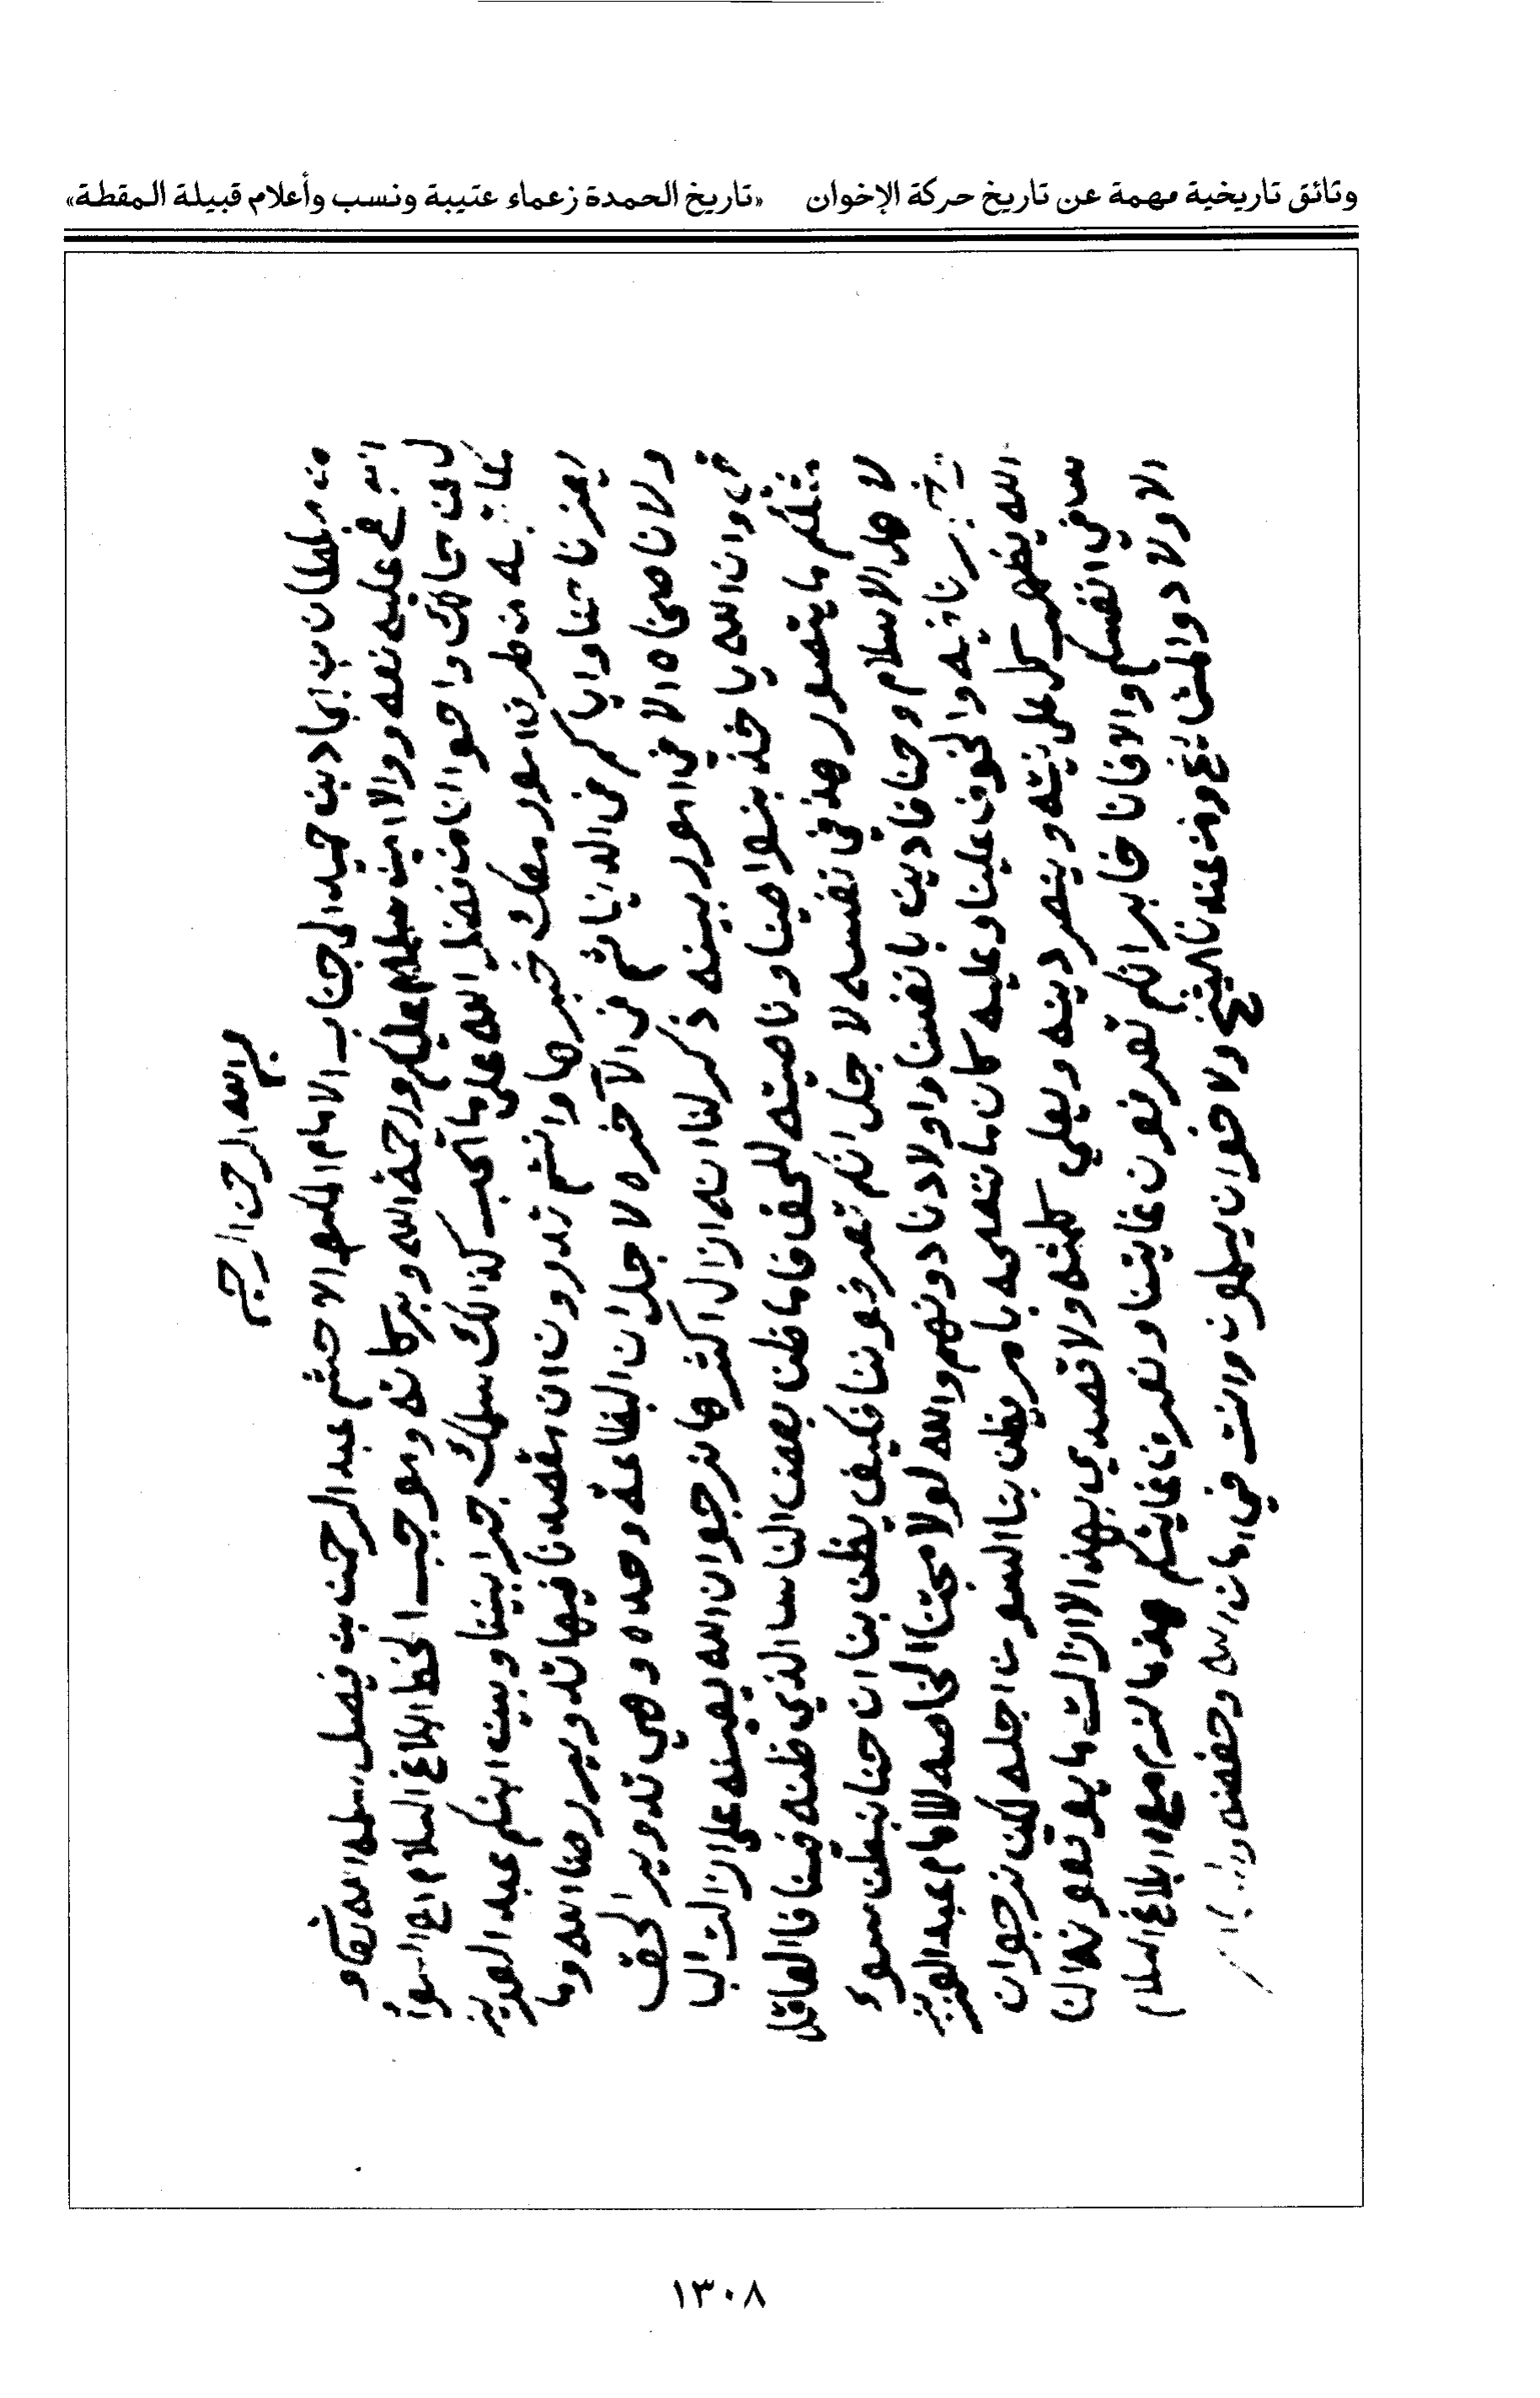 وثائق تاريخية مهمة عن تاريخ حركة الإخوان «تاريخ الحمدة زعماء عتيبة ونسب وأعلام قبيلة المقطة»
بسم الله الرحمن الرحيم
من سلطان بن بجاد بن حميد الى جناب الامام المكرم الاحشم عبد الرحمن بن فيصل سلمه الله تعالى
عليه نعمه سلام عليكم ورحمة الله وبركاته وموجب الخط ابلاغ السلام
عن حالك واحوالنا من فضل الله على ما تحب كذالك سلمك جرا بيننا وبين ابنكم عبد العزيز
به من طرف امور معك خبرها وانتم تدرون ان مقصدنا فيها تدوير رضا الله وما
يعزنا وياكم في الدنيا ثم في الآخره لاجل ان وحده وهي تدوير الحق
ولانا صخاه الا في امور بينه ذكر لنا انه ازال اكثرها نرجوا ان الله يعينه على ازالت البا
قي وان الله ياخذ بنواصينا وناصيته للحق فاما ظن بعض الناس الذي ظنه فينا فا العاقل
مثلكم ما يتصور هذ في نفسه لاجل انكم تعرفوننا فكيف يظن بنا ان حنا سوء
لاهل الاسلام وحنا فادين بانفسنا واولادنا دونهم والله لولا محبتنا الخاصه للامام عبد العزيز
والخوف علينا وعليه كان ما بامر يظن بنا السوء من اجله لكن نرجوا ان
الله يظهر كل على نيته وينصر دينه ويعلي كلمته ولا قصدي بهذ الا ازالت ما يوقعونه النا
س في انفسكم والا فانا خابر انكم تعرفون غايتنا ونعرف غايتكم هذ ما لزم مع ابلاغ السلام
الاولاد والمشايخ ومن عندنا الشيخ ولاخوان يسلمون وانت في امان الله وحفضه
١٣٠٨